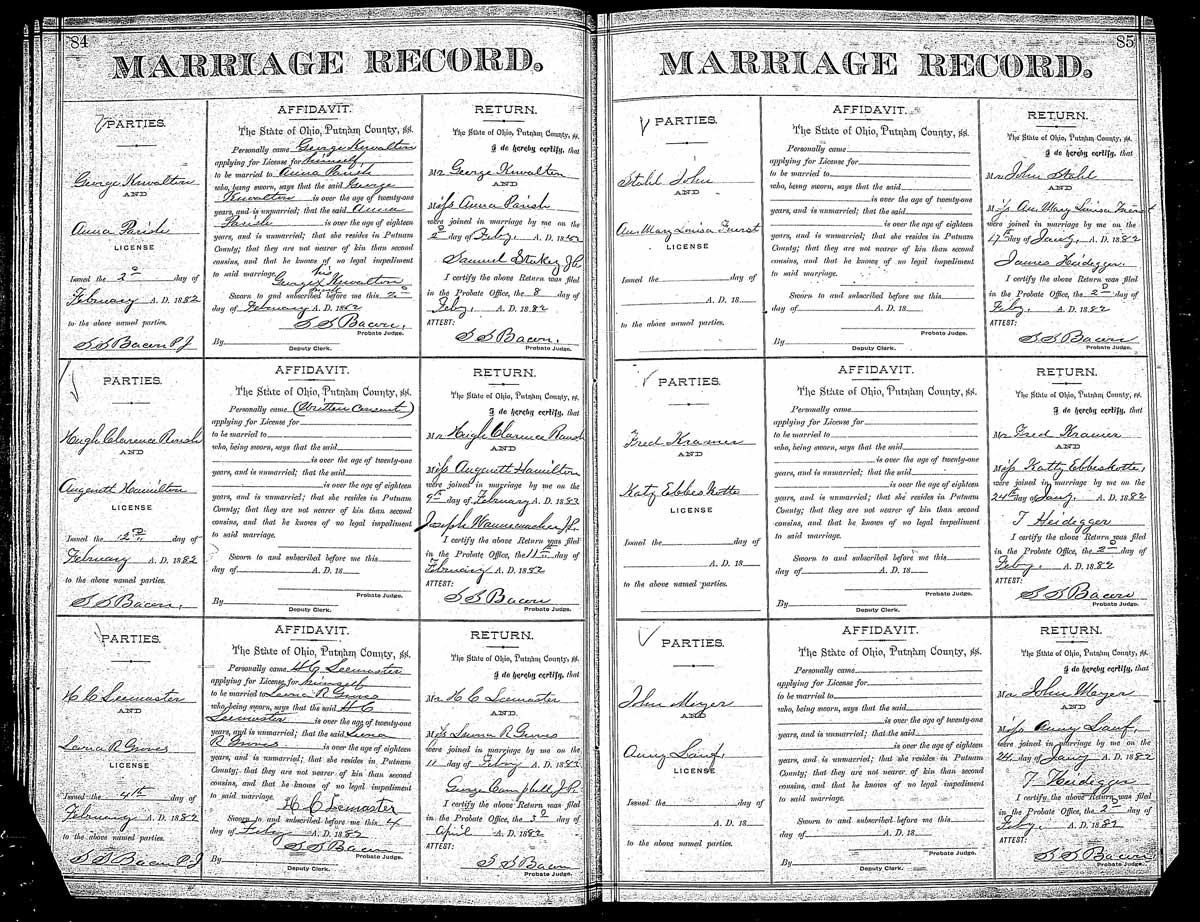 84
MARRIAGE RECORD.
PARTIES.
George Knvalton
AND
Anna Parish
LICENSE
Issued the 2d day of
February A. D. 1882
to the above named parties.
S S Bacon P J
AFFIDAVIT.
The State of Ohio, Putnam County, ss.
Personally came George Knvalton
applying for License for himself
to be married to Anna Parish
who, being sworn, says that the said George
Knvalton is over the age of twenty-one
years, and is unmarried; that the said Anna
Parish is over the age of eighteen
years, and is unmarried; that she resides in Putnam
County; that they are not nearer of kin than second
cousins, and that he knows of no legal impediment
to said marriage. his
George x Knvalton
mark
Sworn to and subscribed before me this 2d
day of February A. D. 1882
S S Bacon,
Probate Judge.
By
Deputy Clerk.
RETURN.
The State of Ohio, Putnam County, ss.
I do hereby certify, that
Mr George Knvalton
AND
Miss Anna Parish
were joined in marriage by me on the
2d day of Feby. A. D. 1882
Samuel Stukey J.P.
I certify the above Return was filed
in the Probate Office, the 8 day of
Feby. A. D. 1882
ATTEST:
S S Bacon.
Probate Judge.
PARTIES.
Hugh Clarence Parish
AND
Hamilton
LICENSE
Issued the
day of
February A. D. 1882
to the above named parties.
S S Bacon,
AFFIDAVIT.
The State of Ohio, Putnam County, ss.
Personally came (Written Consent)
applying for License for
to be married to
who, being sworn, says that the said
is over the age of twenty-one
years, and is unmarried; that the said
is over the age of eighteen
years, and is unmarried; that she resides in Putnam
County; that they are not nearer of kin than second
cousins, and that he knows of no legal impediment
to said marriage.
Sworn to and subscribed before me this
day of A. D. 18
Probate Judge.
By
Deputy Clerk.
RETURN.
The State of Ohio, Putnam County, ss.
I do hereby certify, that
Mr Hugh Clarence Parish
AND
Miss Hamilton
were joined in marriage by me on the
9th day of February A. D. 1882
Joseph Wannemacher J.P.
I certify the above Return was filed
in the Probate Office, the 11th day of
February A. D. 1882
ATTEST:
S S Bacon
Probate Judge.
PARTIES.
H C Leemaster
AND
R Groves
LICENSE
Issued the 4th day of
February A. D. 1882
to the above named parties.
S S Bacon P J
AFFIDAVIT.
The State of Ohio, Putnam County, ss.
Personally came H C Leemaster
applying for License for himself
to be married to R Groves
who, being sworn, says that the said H C
Leemaster is over the age of twenty-one
years, and is unmarried; that the said
R Groves is over the age of eighteen
years, and is unmarried; that she resides in Putnam
County; that they are not nearer of kin than second
cousins, and that he knows of no legal impediment
to said marriage.
H C Lemaster
Sworn to and subscribed before me this 4
day of Feby A. D. 1882
S S Bacon
Probate Judge.
By
Deputy Clerk.
RETURN.
The State of Ohio, Putnam County, ss.
I do hereby certify, that
Mr H C Leemaster
AND
Miss R Groves
were joined in marriage by me on the
11 day of Feby A. D. 1882
George Campbell J.P.
I certify the above Return was filed
in the Probate Office, the 3d day of
April A. D. 1882
ATTEST:
S S Bacon
Probate Judge.
85
MARRIAGE RECORD.
PARTIES.
Stahl John
AND
Mary Louisa Fuerst
LICENSE
Issued the day of
A. D. 18
to the above named parties.
AFFIDAVIT.
The State of Ohio, Putnam County, ss.
Personally came
applying for License for
to be married to
who, being sworn, says that the said
is over the age of twenty-one
years, and is unmarried; that the said
is over the age of eighteen
years, and is unmarried; that she resides in Putnam
County; that they are not nearer of kin than second
cousins, and that he knows of no legal impediment
to said marriage.
Sworn to and subscribed before me this
day of A. D. 18
Probate Judge.
By
Deputy Clerk.
RETURN.
The State of Ohio, Putnam County, ss.
I do hereby certify, that
Mr John Stahl
AND
Miss Mary Louisa Fuerst
were joined in marriage by me on the
17th day of Jany. A. D. 1882
James Heidegger.
I certify the above Return was filed
in the Probate Office, the 2d day of
Feby. A. D. 1882
ATTEST:
S S Bacon
Probate Judge.
PARTIES.
Fred Kramer
AND
Katy Ebbeskotte
LICENSE
Issued the day of
A. D. 18
to the above named parties.
AFFIDAVIT.
The State of Ohio, Putnam County, ss.
Personally came
applying for License for
to be married to
who, being sworn, says that the said
is over the age of twenty-one
years, and is unmarried; that the said
is over the age of eighteen
years, and is unmarried; that she resides in Putnam
County; that they are not nearer of kin than second
cousins, and that he knows of no legal impediment
to said marriage.
Sworn to and subscribed before me this
day of A. D. 18
Probate Judge.
By
Deputy Clerk.
RETURN.
The State of Ohio, Putnam County, ss.
I do hereby certify, that
Mr Fred Kramer
AND
Miss Katty Ebbeskotte,
were joined in marriage by me on the
24th day of Jany. A. D. 1882
T Heidegger
I certify the above Return was filed
in the Probate Office, the 2d day of
Feby. A. D. 1882
ATTEST:
S S Bacon
Probate Judge.
PARTIES.
John Meyer
AND
Anny Lauf,
LICENSE
Issued the day of
A. D. 18
to the above named parties.
AFFIDAVIT.
The State of Ohio, Putnam County, ss.
Personally came
applying for License for
to be married to
who, being sworn, says that the said
is over the age of twenty-one
years, and is unmarried; that the said
is over the age of eighteen
years, and is unmarried; that she resides in Putnam
County; that they are not nearer of kin than second
cousins, and that he knows of no legal impediment
to said marriage.
Sworn to and subscribed before me this
day of A. D. 18
Probate Judge.
By
Deputy Clerk.
RETURN.
The State of Ohio, Putnam County, ss.
I do hereby certify, that
Mr John Meyer
AND
Miss Anny Lauf,
were joined in marriage by me on the
24 day of Jany A. D. 1882
T Heidegger
I certify the above Return was filed
in the Probate Office, the 2d day of
Feby. A. D. 1882
ATTEST:
S S Bacon
Probate Judge.